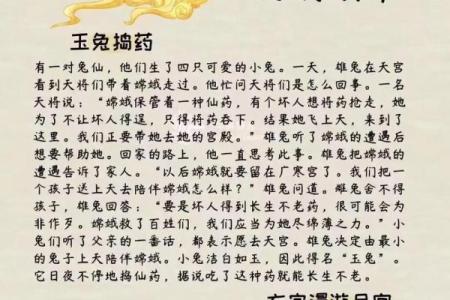 玉兔捣药
有一对兔仙，他们生了四只可爱的小兔。一天，雄兔在天宫
看到天将们带着嫦娥走过。他忙问天将们是怎么回事。一名
天将说：“嫦娥保管着一种仙药，有个坏人想将药抢走，她
为了不让坏人得逞，只得将药吞下。结果她飞上天，来到了
这里。我们正要带她去她的宫殿。”雄兔听了嫦娥的遭遇后
想要帮助她。回家的路上，他一直思考此事。雄兔把嫦娥的
遭遇告诉了家人。“以后嫦娥就要留在广寒宫了。我们把一
个孩子送上天去陪伴嫦娥怎么样？”雄兔问道。雌兔舍不得
孩子，雄兔回答：“要是坏人得到长生不老药，很可能会为
非作歹。嫦娥救了百姓们，我们应当为她尽绵薄之力。”小
兔们听了父亲的一番话，都表示愿去天宫。雄兔决定由最小
的兔子上天陪伴嫦娥。小兔洁白如玉，因此得名“玉兔”。
它日夜不停地捣仙药，据说吃了这种药就能长生不老。